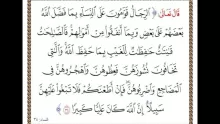 قال تعالى ﴿ الرِّجَالُ قَوَّامُونَ عَلَى النِّسَاءِ بِمَا فَضَّلَ اللَّهُ
بَعْضَهُمْ عَلَى بَعْضٍ وَبِمَا أَنفَقُوا مِنْ أَمْوَالِهِمْ فَالصَّالِحَاتُ
قَانِتَاتٌ حَافِظَاتٌ لِّلْغَيْبِ بِمَا حَفِظَ اللَّهُ وَاللَّاتِي
تَخَافُونَ نُشُوزَهُنَّ فَعِظُوهُنَّ وَاهْجُرُوهُنَّ فِي
الْمَضَاجِعِ وَاضْرِبُوهُنَّ فَإِنْ أَطَعْنَكُمْ فَلَا تَبْغُوا عَلَيْهِنَّ
سَبِيلًا إِنَّ اللَّهَ كَانَ عَلِيًّا كَبِيرًا ﴾